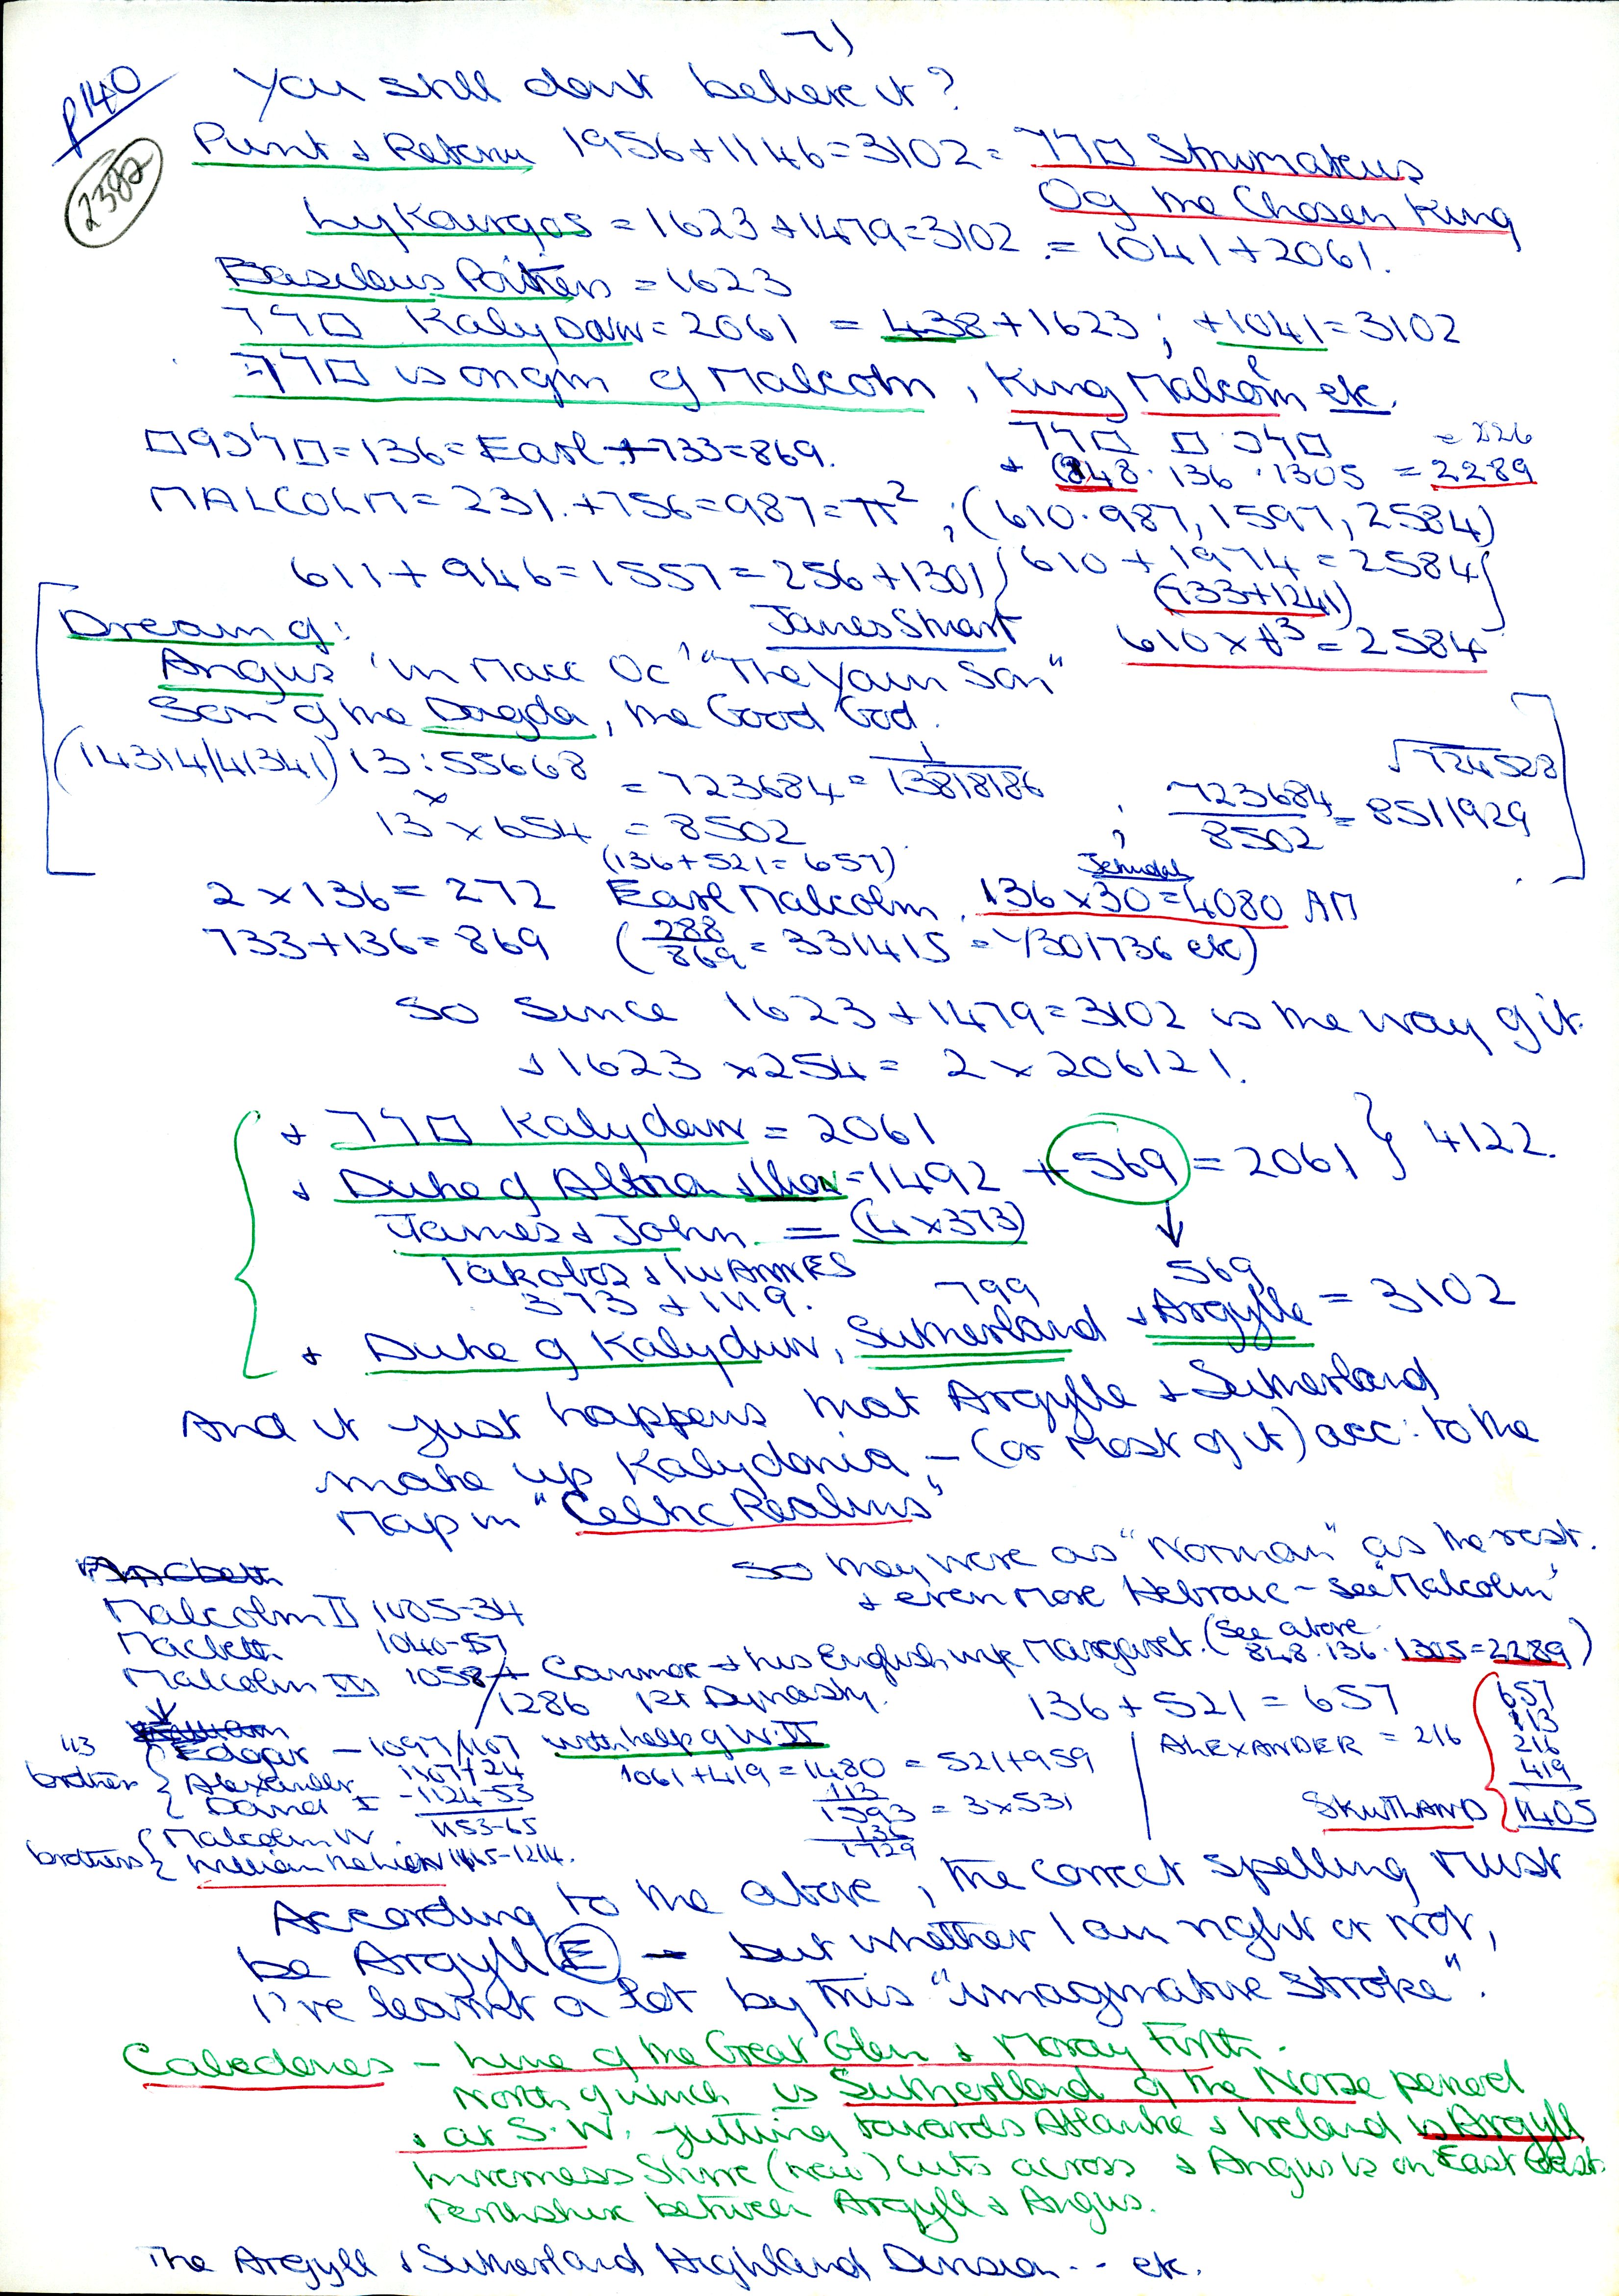 7)
p140
2382
You still dont believe it?
Punt & Return 1956+1146=3102=
Og the Chosen King
Lykourgos = 1623+1479=3102 = 1041+2061.
= 1623
Kalydown = 2061 = 438+1623; +1041=3102
is origin of Malcolm, King Malcolm etc.
=136=Earl.+733=869.
+ 848.136.1305 = 2289
MALCOLM=231.+756=987=π²; (610.987,1597,2584)
611+946=1557=256+1301 610+1974=2584
(733+1241)
James Stuart 610x = 2584
Dream of:
Angus 'in Macc Oc' "The Youn Son"
Son of the Dagda, the Good God.
(14314/41341) 13:55668 = 723684 = 1/13818186 ; 723684/8502 = 8511929 √724528
13 x 654 = 8502
(136+521=657)
2x136=272 Earl Malcolm. 136x30=4080 AM
Jehudah
733+136=869 (288/869=331415=1/301736 etc)
So since 1623+1479=3102 is the way of it.
& 1623 x254= 2x206121.
+ Kalydown = 2061
+ Duke of =1492 +569=2061 } 4122.
James & John. = (4x373)
Iakobos & IwANNES
373 + 1119. 799 569
+ Duke of Kalydwn, Sutherland & Argylle = 3102
And it just happens that Argylle & Sutherland
make up Kalydonia, - (or most of it) acc: to the
Map in "Celtic Realms"
So they were as "Norman" as the rest.
& even more Hebraic - see "Malcolm"
Macbeth
Malcolm II 1005-34
Macbeth 1040-57
Malcolm III 1058/+ Canmore & his English wife Margaret. (See above 848.136.1305=2289)
1286 1st Dynasty.
136+521=657
Edgar - 1097/1107 with help of W.II
113
brother Alexander 1107/24
David I - 1124-53
1061+419=1480=521+959
113
1593 = 3x531
136
1729
ALEXANDER = 216
657
113
216
419
SKWTLAND 1405
brothers Malcolm IV. 1153-65
William the Lion 1165-1214.
According to the above, the correct spelling must
be Argyll(E) - but whether I am right or not,
I've learnt a lot by this "imaginative stroke".
Caledones - Line of the Great Glen & Moray Firth.
North of which is Sutherland of the Norse period
& at S.W. jutting towards Atlantic & Ireland is Argyll
Inverness Shire (new) cuts across & Angus is on East Coast.
Perthshire between Argyll & Angus.
The Argyll & Sutherland Highland Division.. etc.